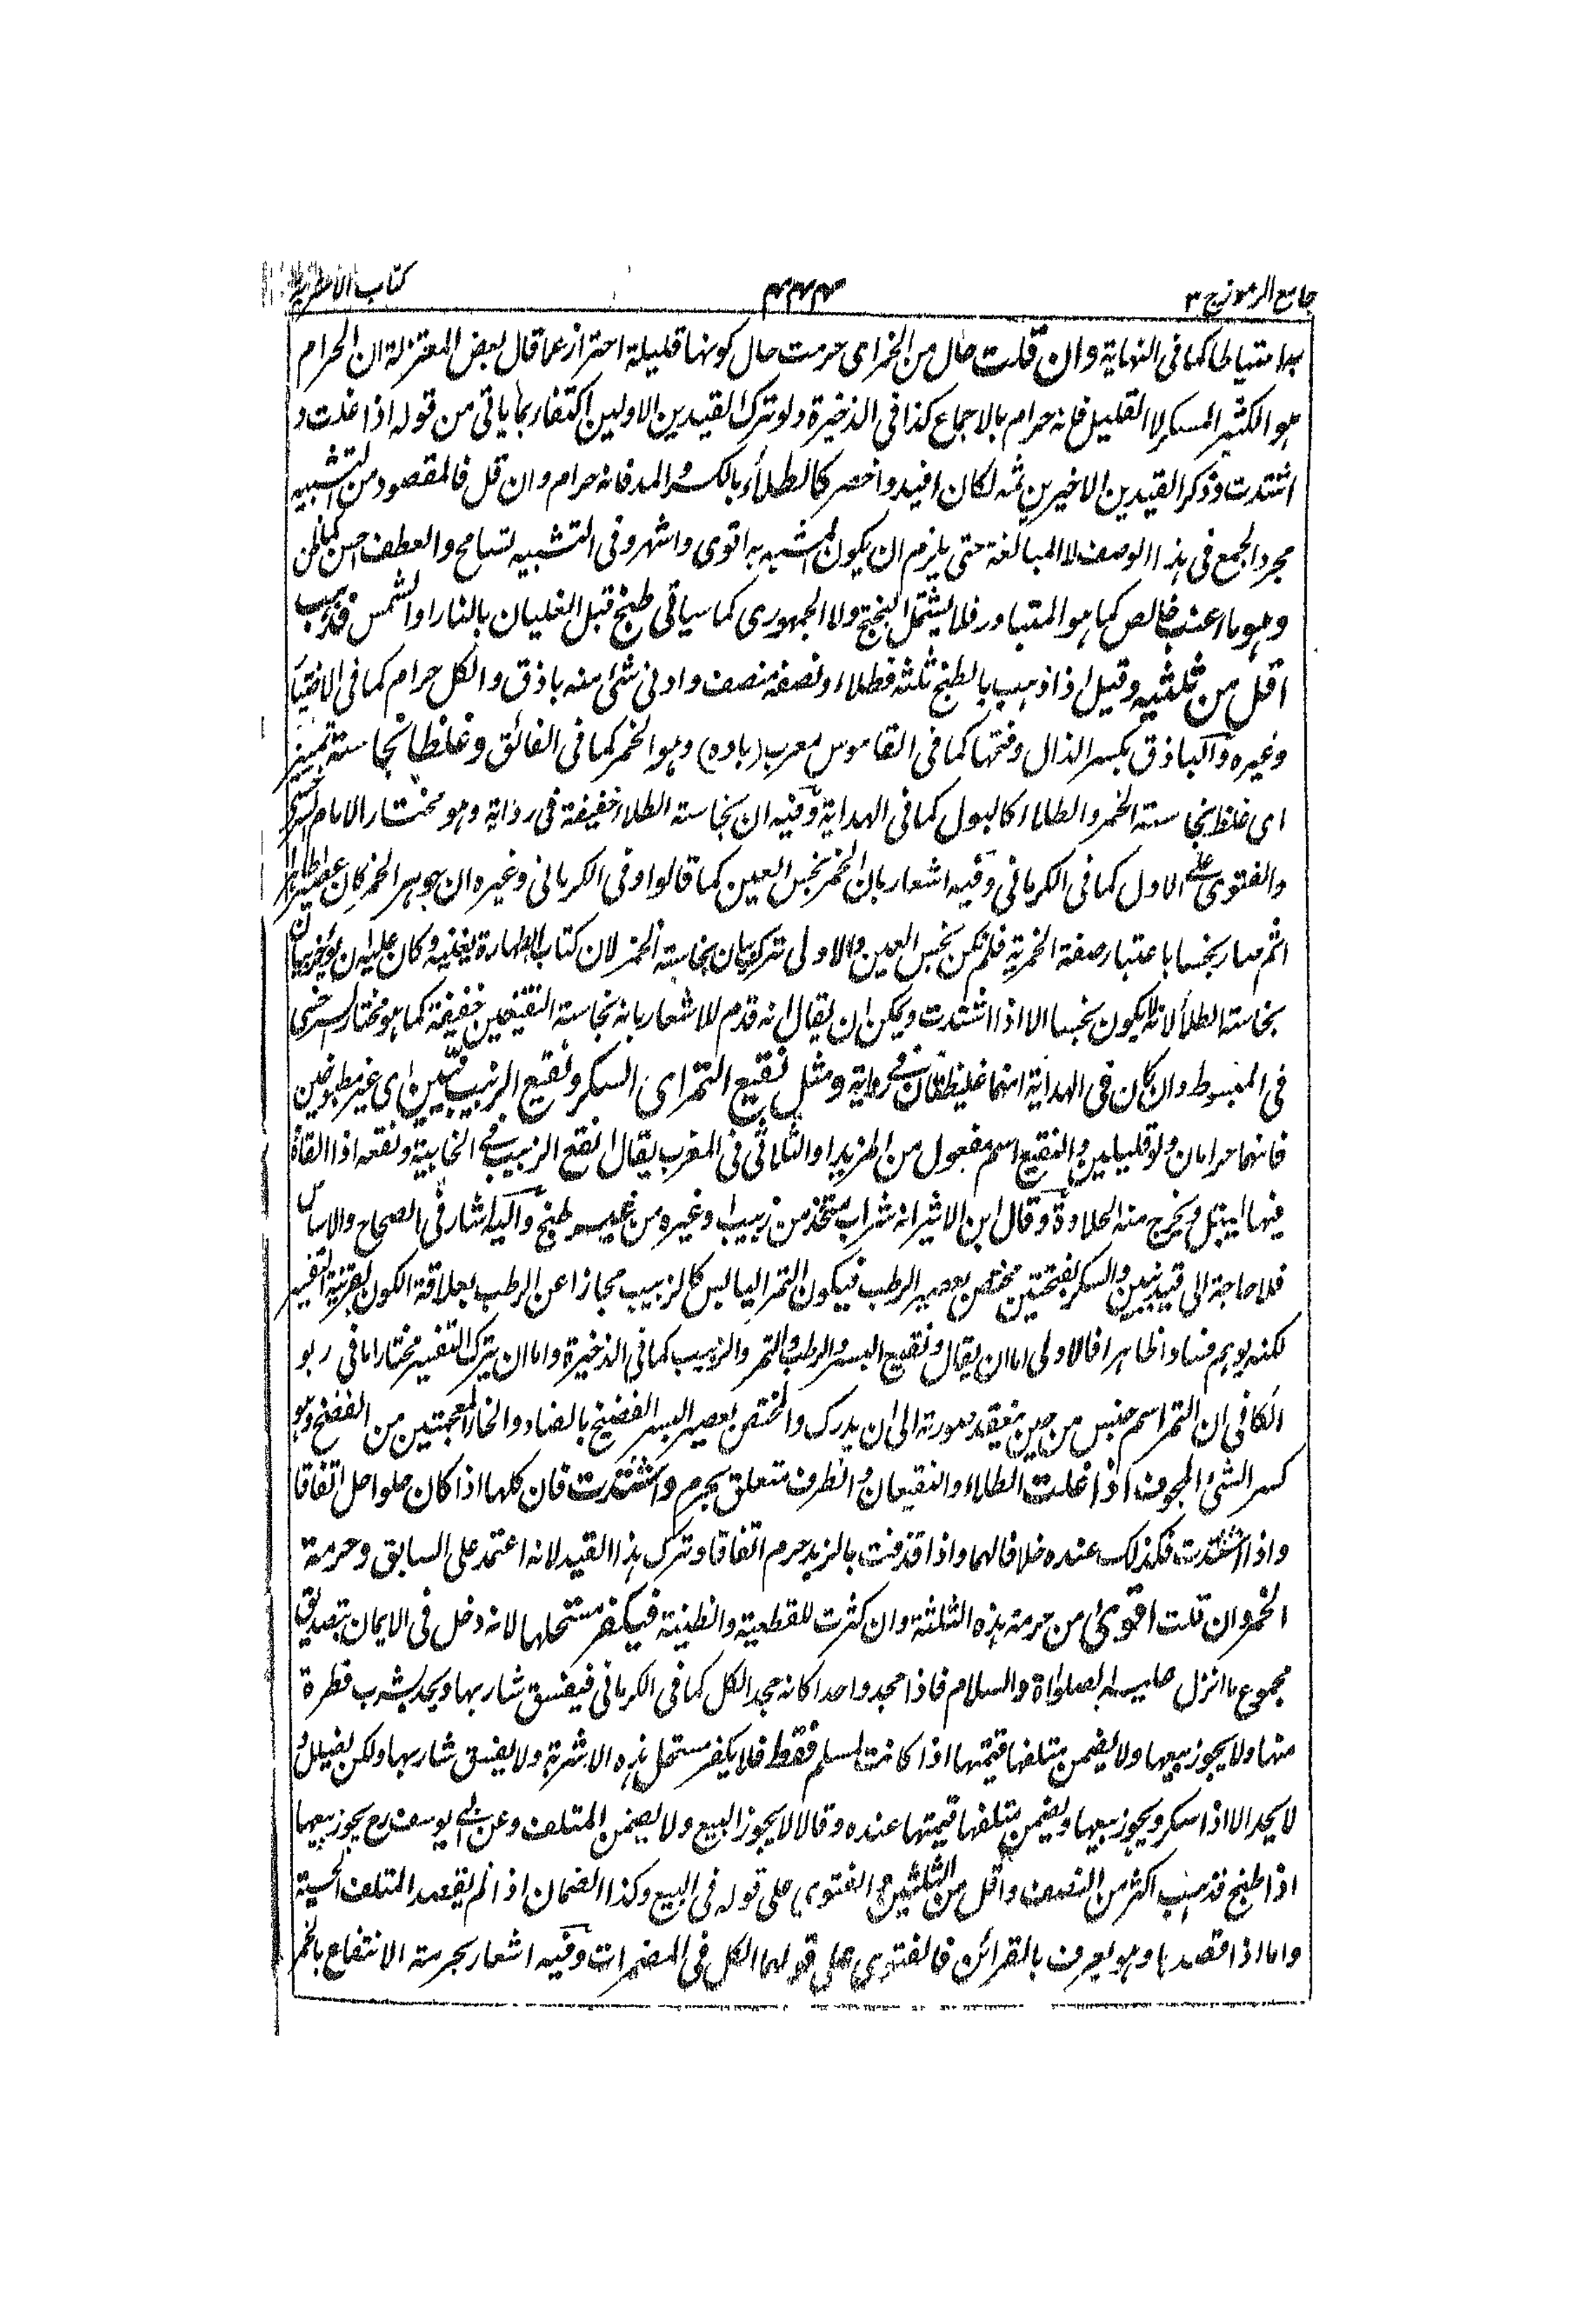 جامع الرموز ج ۳
۴۴۴
كتاب الاشربة
به احتياطا كما فى النهاية وان قلت حال من الخمر اى حرمت حال كونها قليلة احتراز عما قال بعض المعتزلة ان الحرام
هو الكثير المسكر لا القليل فانه حرام بالاجماع كذا فى الذخيرة ولو ترك القيدين الاولين اكتفاء بما ياتى من قوله اذا غلت و
اشتدت وذكر القيدين الاخيرين ثمه لكان افيد واخصر كالطلاء بالكسر والمد فانه حرام وان قل فالمقصود من التشبيه
مجرد الجمع فى هذا الوصف لا المبالغة حتى يلزم ان يكون المشبه به اقوى واشهر وفى التشبيه تسامح والعطف احسن كما ظن
وهو ماء عنب خالص كما هو المتبادر فلا يشتمل البختج ولا الجمهورى كما سياتى طبخ قبل الغليان بالنار او الشمس فذهب
اقل من ثلثيه وقيل اذا ذهب بالطبخ ثلثه فطلاء او نصفه منصف وادنى شئ منه باذق والكل حرام كما فى الاختيار
وغيره والباذق بكسر الذال وفتحها كما فى القاموس معرب (باده) وهو الخمر كما فى الفائق وغلظا نجاسة تمييز
اى غلظ نجاسة الخمر والطلاء كالبول كما فى الهداية وفيه ان نجاسة الطلاء خفيفة فى رواية وهو مختار الامام السرخسى
والفتوى على الاول كما فى الكرمانى وفيه اشعار بان الخمر نجس العين كما قالوا وفى الكرمانى وغيره ان جوهر الخمر كان عصيرا طاهرا
ثم صار نجسا باعتبار صفة الخمرية فلم تكن نجس العين والاولى ترك بيان نجاسة الخمر لان كتاب الطهارة يغنيه وكان عليه ان يؤخر بيان
نجاسة الطلاء لانه لا يكون نجسا الا اذا اشتدت ويمكن ان يقال انه قدم للاشعار بانه نجاسة النقيعين خفيفة كما هو مختار السرخسى
فى المبسوط وان كان فى الهداية انهما غليظتان فى رواية ومثل نقيع التمر اى السكر ونقيع الزبيب نيين اى غير مطبوخين
فانهما حرامان ولو قليلين والنقيع اسم مفعول من المزيد او الثلاثى فى المغرب يقال انقع الزبيب فى الخابية ونقعه اذا القاه
فيها ليبتل ويخرج منه الحلاوة وقال ابن الاثير انه شراب متخذ من زبيب او غيره من غير طبخ واليه اشار فى الصحاح والاساس
فلا حاجة الى قيد نيين والسكر بفتحتين مختص بعصير الرطب فيكون التمر اليابس كالزبيب مجازا عن الرطب بعلاقة الكون بقرينة التفسير
لكنه يوهم فسادا ظاهرا فالاولى اما ان يقال ونقيع البسر والرطب والتمر والزبيب كما فى الذخيرة واما ان يترك التفسير مختارا ما فى ربو
الكافى ان التمر اسم جنس من حين ينعقد صورته الى ان يدرك والمختص بعصير البسر الفضيخ بالضاد والخاء المعجمتين من الفضخ وهو
كسر الشئ المجوف اذا غلت الطلاء والنقيعان والظرف متعلق بحرم واشتدت فان كلها اذا كان حلوا حل اتفاقا
واذا اشتدت فكذلك عنده خلافا لهما واذا قذفت بالزبد حرم اتفاقا وترك هذا القيد لانه اعتمد على السابق وحرمة
الخمر وان قلت اقوى من حرمة هذه الثلثة وان كثرت للقطعية والظنية فيكفر مستحلها لانه دخل فى الايمان بتصديق
مجموع ما انزل عليه الصلواة والسلام فاذا جحد واحدا كانه جحد الكل كما فى الكرمانى فيفسق شاربها ويحد بشرب قطرة
منها ولا يجوز بيعها ولا يضمن متلفها قيمتها اذا كانت لمسلم فقط فلا يكفر مستحل هذه الاشربة ولا يفسق شاربها ولكن يضلل و
لا يحد الا اذا سكر ويجوز بيعها ويضمن متلفها قيمتها عنده وقالا لا يجوز البيع ولا يضمن المتلف وعن ابى يوسف رح يجوز بيعها
اذا طبخ فذهب اكثر من النصف واقل من الثلثين والفتوى على قوله فى البيع وكذا الضمان اذا لم يقصد المتلف الحسبة
واما اذا قصدها وهو يعرف بالقرائن فالفتوى على قولهما الكل فى المضمرات وفيه اشعار بحرمة الانتفاع بالخمر